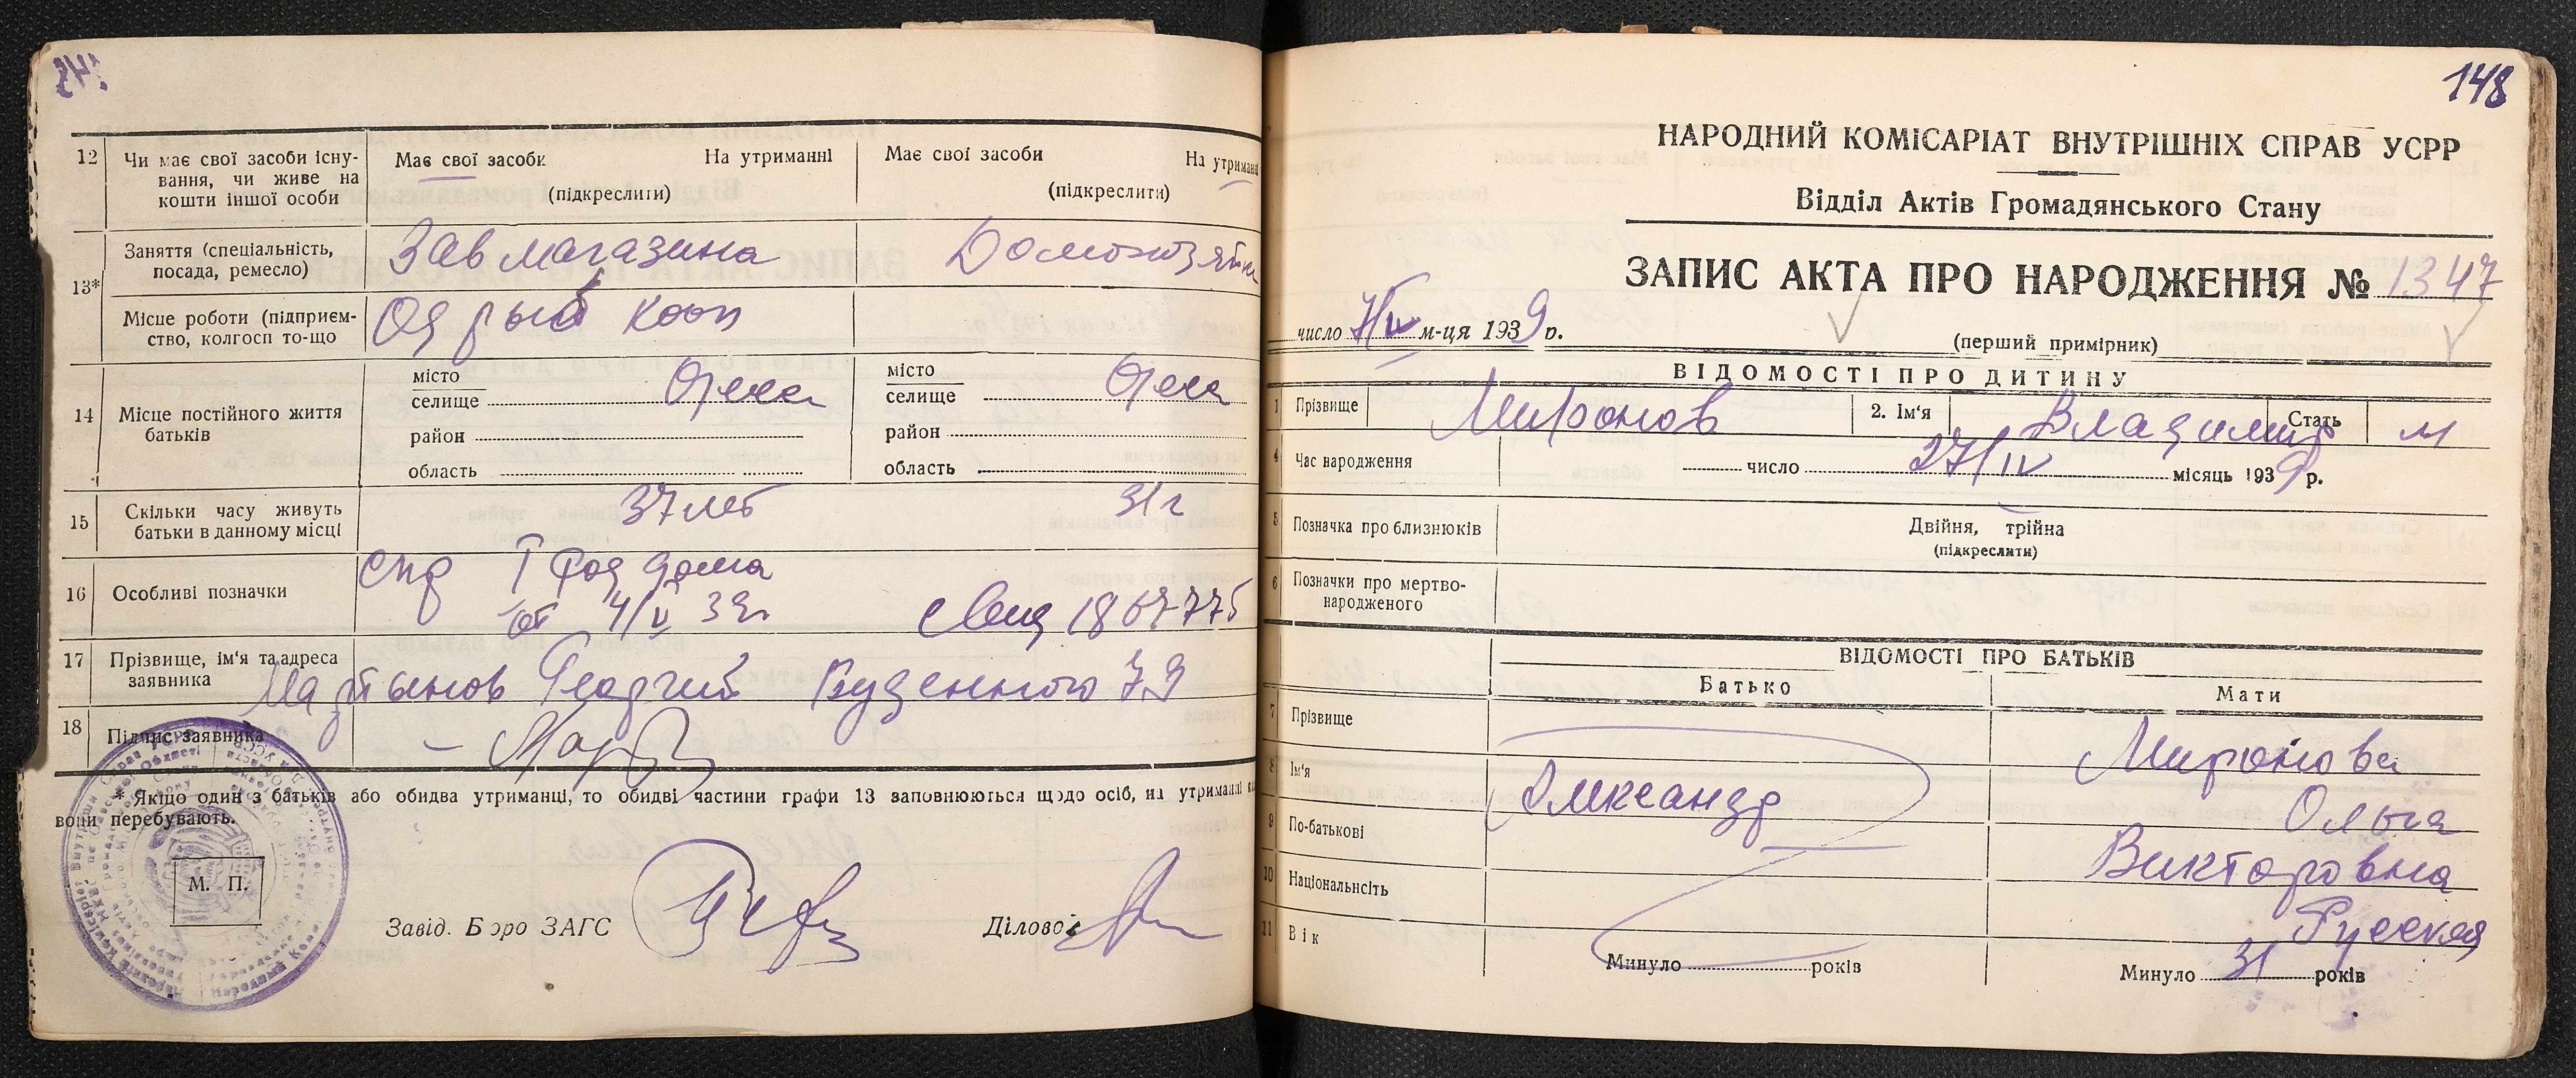 12 Чи має свої засоби існу-
вання, чи живе на
кошти іншої особи
Має свої засоби На утриманні
(підкреслити)
Має свої засоби На утриманні
(підкреслити)
13* Заняття (спеціальність,
посада, ремесло)
Зав магазина
Домохозяйка
Місце роботи (підприєм-
ство, колгосп то-що
кооп
14 Місце постійного життя
батьків
місто
селище Одеса
район
область
місто
селище Одеса
район
область
15 Скільки часу живуть
батьки в данному місці
37 лет
31 г
16 Особливі позначки
спр 1 род дома
от 4/V 39г свид 1867775
17 Прізвище, ім'я та адреса
заявника
Мартынов Георгий Буденного 79
18 Підпис заявника
* Якщо один з батьків або обидва утриманці, то обидві частини графи 13 заповнюються щодо осіб, на утриманні
вони перебувають.
М. П.
Завід. Бюро ЗАГС
Діловод
148
НАРОДНИЙ КОМІСАРІАТ ВНУТРІШНІХ СПРАВ УСРР
Відділ Актів Громадянського Стану
ЗАПИС АКТА ПРО НАРОДЖЕННЯ № 1347
число м-ця 1939 р.
(перший примірник)
ВІДОМОСТІ ПРО ДИТИНУ
1 Прізвище Миронов 2. Ім'я Владимир Стать м
4 Час народження число 27/IV місяць 1939 р.
5 Позначка про близнюків
Двійня, трійна
(підкреслити)
6 Позначки про мертво-
народженого
ВІДОМОСТІ ПРО БАТЬКІВ
Батько Мати
7 Прізвище Миронова
8 Ім'я Александр Ольга
9 По-батькові Викторовна
10 Національність Русская
11 Вік Минуло років Минуло 31 років